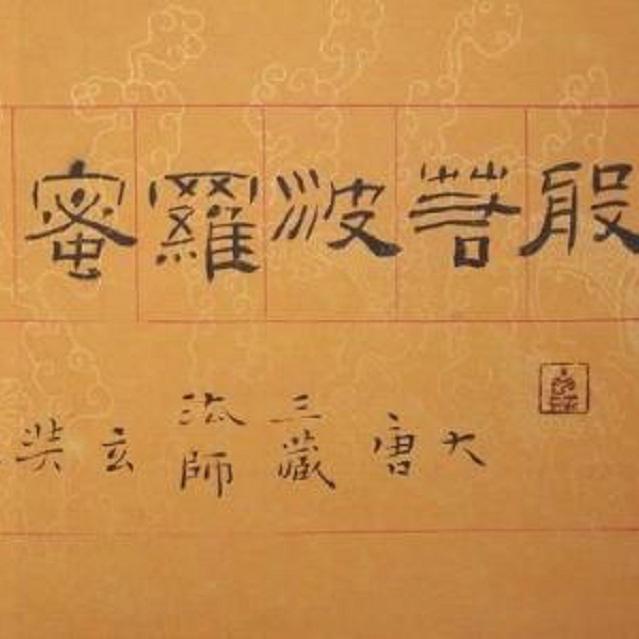 般若波羅蜜
大唐三藏法師玄奘